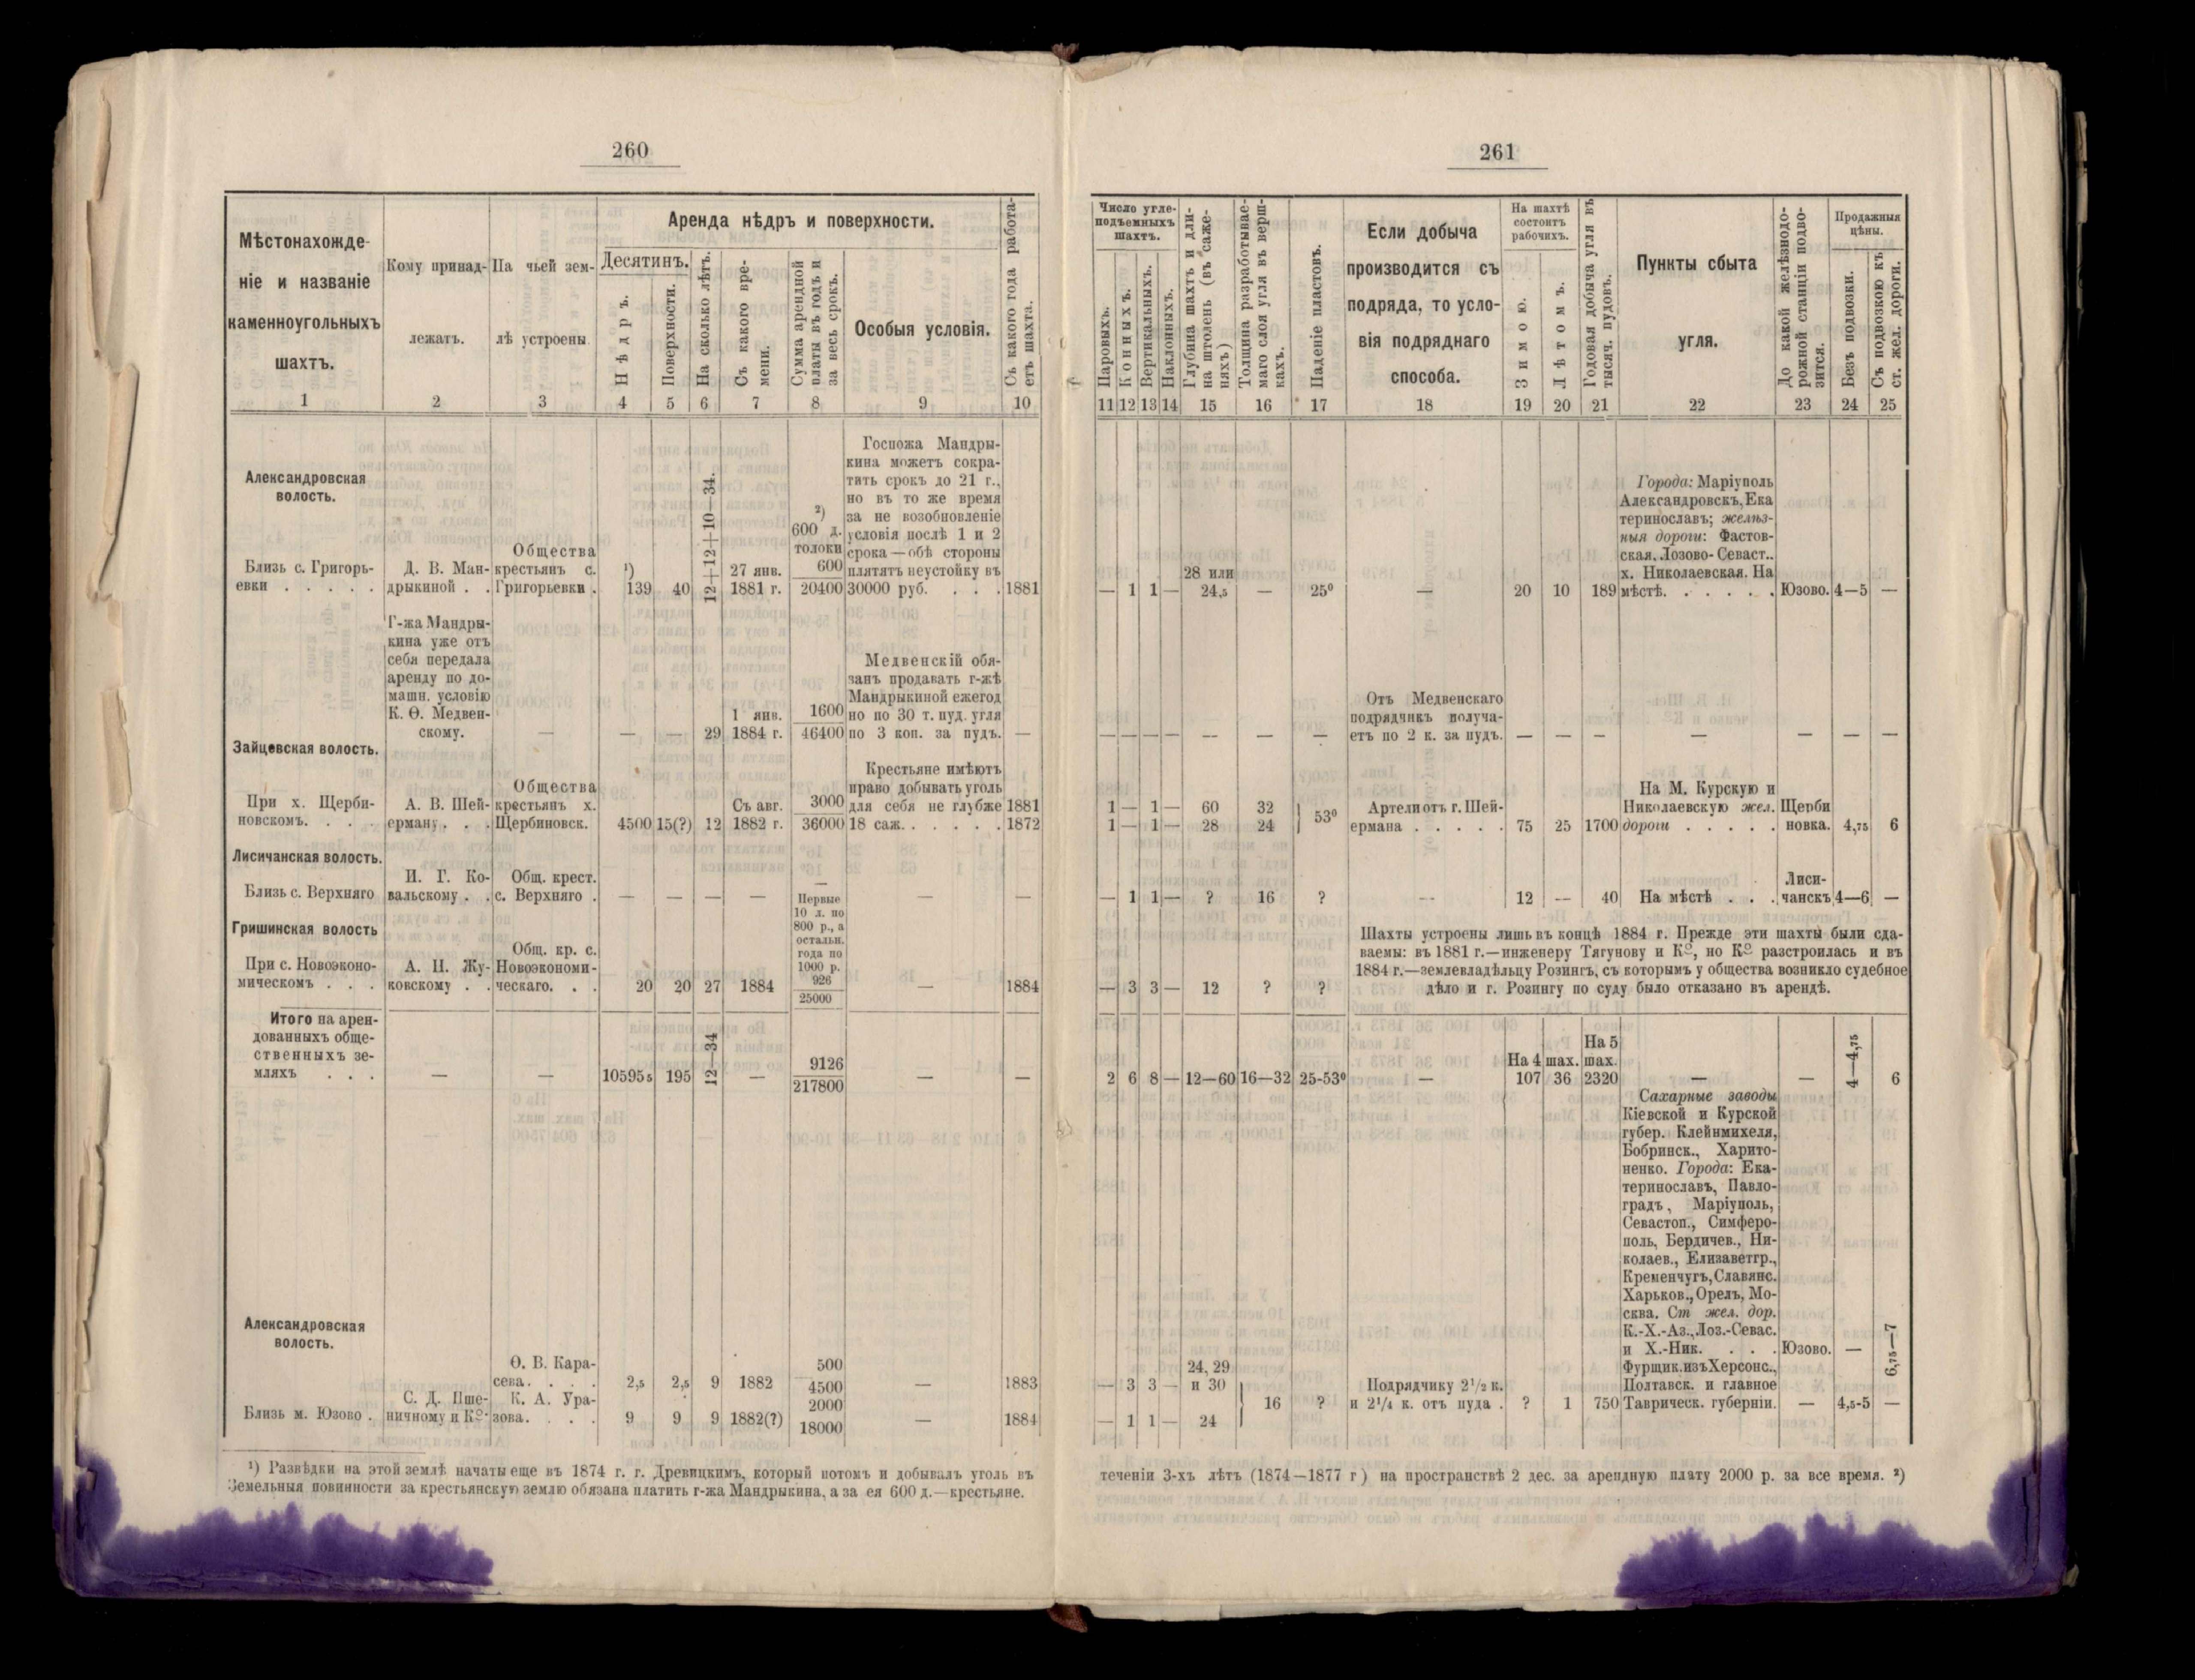 260
Мѣстонахожде-
ніе и названіе
каменноугольныхъ
шахтъ.
Кому принад-
лежатъ.
На чьей зем-
лѣ устроены
Аренда нѣдръ и поверхности.
Десятинъ.
Нѣдръ.
Поверхности.
На сколько лѣтъ.
Съ какого вре-
мени.
Сумма арендной
платы въ годъ и
за весь срокъ.
Особыя условія.
Съ какого года работа-
етъ шахта.
1 2 3 4 5 6 7 8 9 10
Александровская
волость.
Близь с. Григорь-
евки . . . . .
Д. В. Ман-
дрыкиной . .
Общества
крестьянъ с.
Григорьевки .
¹)
139 40
12+12+10—34.
27 янв.
1881 г.
²)
600 д.
толоки
600
20400
Госпожа Мандры-
кина можетъ сокра-
тить срокъ до 21 г.,
но въ то же время
за не возобновленіе
условія послѣ 1 и 2
срока — обѣ стороны
платятъ неустойку въ
30000 руб. . . .
1881
Г-жа Мандры-
кина уже отъ
себя передала
аренду по до-
машн. условію
К. Ѳ. Медвен-
скому.
— — — 29
1 янв.
1884 г.
1600
46400
Медвенскій обя-
занъ продавать г-жѣ
Мандрыкиной ежегод
но по 30 т. пуд. угля
по 3 коп. за пудъ. —
Зайцевская волость.
При х. Щерби-
новскомъ. . . .
А. В. Шей-
ерману. . . .
Общества
крестьянъ х.
Щербиновск.
4500 15(?) 12
Съ авг.
1882 г.
3000
36000
Крестьяне имѣютъ
право добывать уголь
для себя не глубже
18 саж. . . . . .
1881
1872
Лисичанская волость.
Близь с. Верхняго
И. Г. Ко-
вальскому . .
Общ. крест.
с. Верхняго .
— — — — — — —
Гришинская волость
При с. Новоэконо-
мическомъ . . .
А. Н. Жу-
ковскому . .
Общ. кр. с.
Новоэкономи-
ческаго. . .
20 20 27 1884
Первые
10 л. по
800 р., а
остальн.
года по
1000 р.
926
25000
— 1884
Итого на арен-
дованныхъ обще-
ственныхъ зе-
мляхъ . . .
— — 10595₅ 195 12—34 —
9126
217800
— —
Александровская
волость.
Близь м. Юзово .
С. Д. Пше-
ничному и Кº·
Ѳ. В. Кара-
сева. . . .
2,₅ 2,₅ 9 1882
500
4500
— 1883
К. А. Ура-
зова. . . .
9 9 9 1882(?)
2000
18000
— 1884
¹) Развѣдки на этой землѣ начаты еще въ 1874 г. г. Древицкимъ, который потомъ и добывалъ уголь въ
Земельныя повинности за крестьянскую землю обязана платить г-жа Мандрыкина, а за ея 600 д.—крестьяне.
261
Число угле-
подъемныхъ
шахтъ.
Паровыхъ.
Конныхъ.
Вертикальныхъ.
Наклонныхъ.
Глубина шахтъ и дли-
на штоленъ (въ саже-
няхъ)
Толщина разработывае-
маго слоя угля въ верш-
кахъ.
Паденіе пластовъ.
Если добыча
производится съ
подряда, то усло-
вія подряднаго
способа.
На шахтѣ
состоитъ
рабочихъ.
Зимою.
Лѣтомъ.
Годовая добыча угля въ
тысяч. пудовъ.
Пункты сбыта
угля.
До какой желѣзнодо-
рожной станціи подво-
зится.
Продажныя
цѣны.
Безъ подвозки.
Съ подвозкою къ
ст. жел. дороги.
11 12 13 14 15 16 17 18 19 20 21 22 23 24 25
— 1 1 —
28 или
24,₅
— 25⁰ — 20 10 189
Города: Маріуполь
Александровскъ, Ека
теринославъ; желѣз-
ныя дороги: Фастов-
ская, Лозово-Севаст..
х. Николаевская. На
мѣстѣ. . . . . .
Юзово. 4—5 —
— — — — — — —
Отъ Медвенскаго
подрядчикъ получа-
етъ по 2 к. за пудъ.
— — — — — — —
1 — 1 — 60 32
1 — 1 — 28 24
53⁰
Артели отъ г. Шей-
ермана . . . . .
75 25 1700
На М. Курскую и
Николаевскую жел.
дороги . . . . .
Щерби
новка. 4,₇₅ 6
— 1 1 — ? 16 ? — 12 — 40 На мѣстѣ . . .
Лиси-
чанскъ 4—6 —
— 3 3 — 12 ? ?
Шахты устроены лишь въ концѣ 1884 г. Прежде эти шахты были сда-
ваемы: въ 1881 г.—инженеру Тягунову и Кº, но Кº разстроилась и въ
1884 г.—землевладѣльцу Розингъ, съ которымъ у общества возникло судебное
дѣло и г. Розингу по суду было отказано въ арендѣ.
2 6 8 — 12—60 16—32 25-53⁰ —
На 4 шах.
107 36
На 5
шах.
2320
— — 4—4,₇₅ 6
Сахарные заводы
Кіевской и Курской
губер. Клейнмихеля,
Бобринск., Харито-
ненко. Города: Ека-
теринославъ, Павло-
градъ, Маріуполь,
Севастоп., Симферо-
поль, Бердичев., Ни-
колаев., Елизаветгр.,
Кременчугъ, Славянс.
Харьков., Орелъ, Мо-
сква. Ст жел. дор.
К.-Х.-Аз., Лоз.-Севас.
и Х.-Ник. . . .
Юзово. — 6,₇₅—7
— 3 3 —
24, 29
и 30
— 1 1 — 24
16 ?
Подрядчику 2¹/₂ к.
и 2¹/₄ к. отъ пуда .
? 1 750
Фурщик. изъ Херсонс.,
Полтавск. и главное
Таврическ. губерніи.
— 4,₅-5 —
теченіи 3-хъ лѣтъ (1874—1877 г ) на пространствѣ 2 дес. за арендную плату 2000 р. за все время. ²)